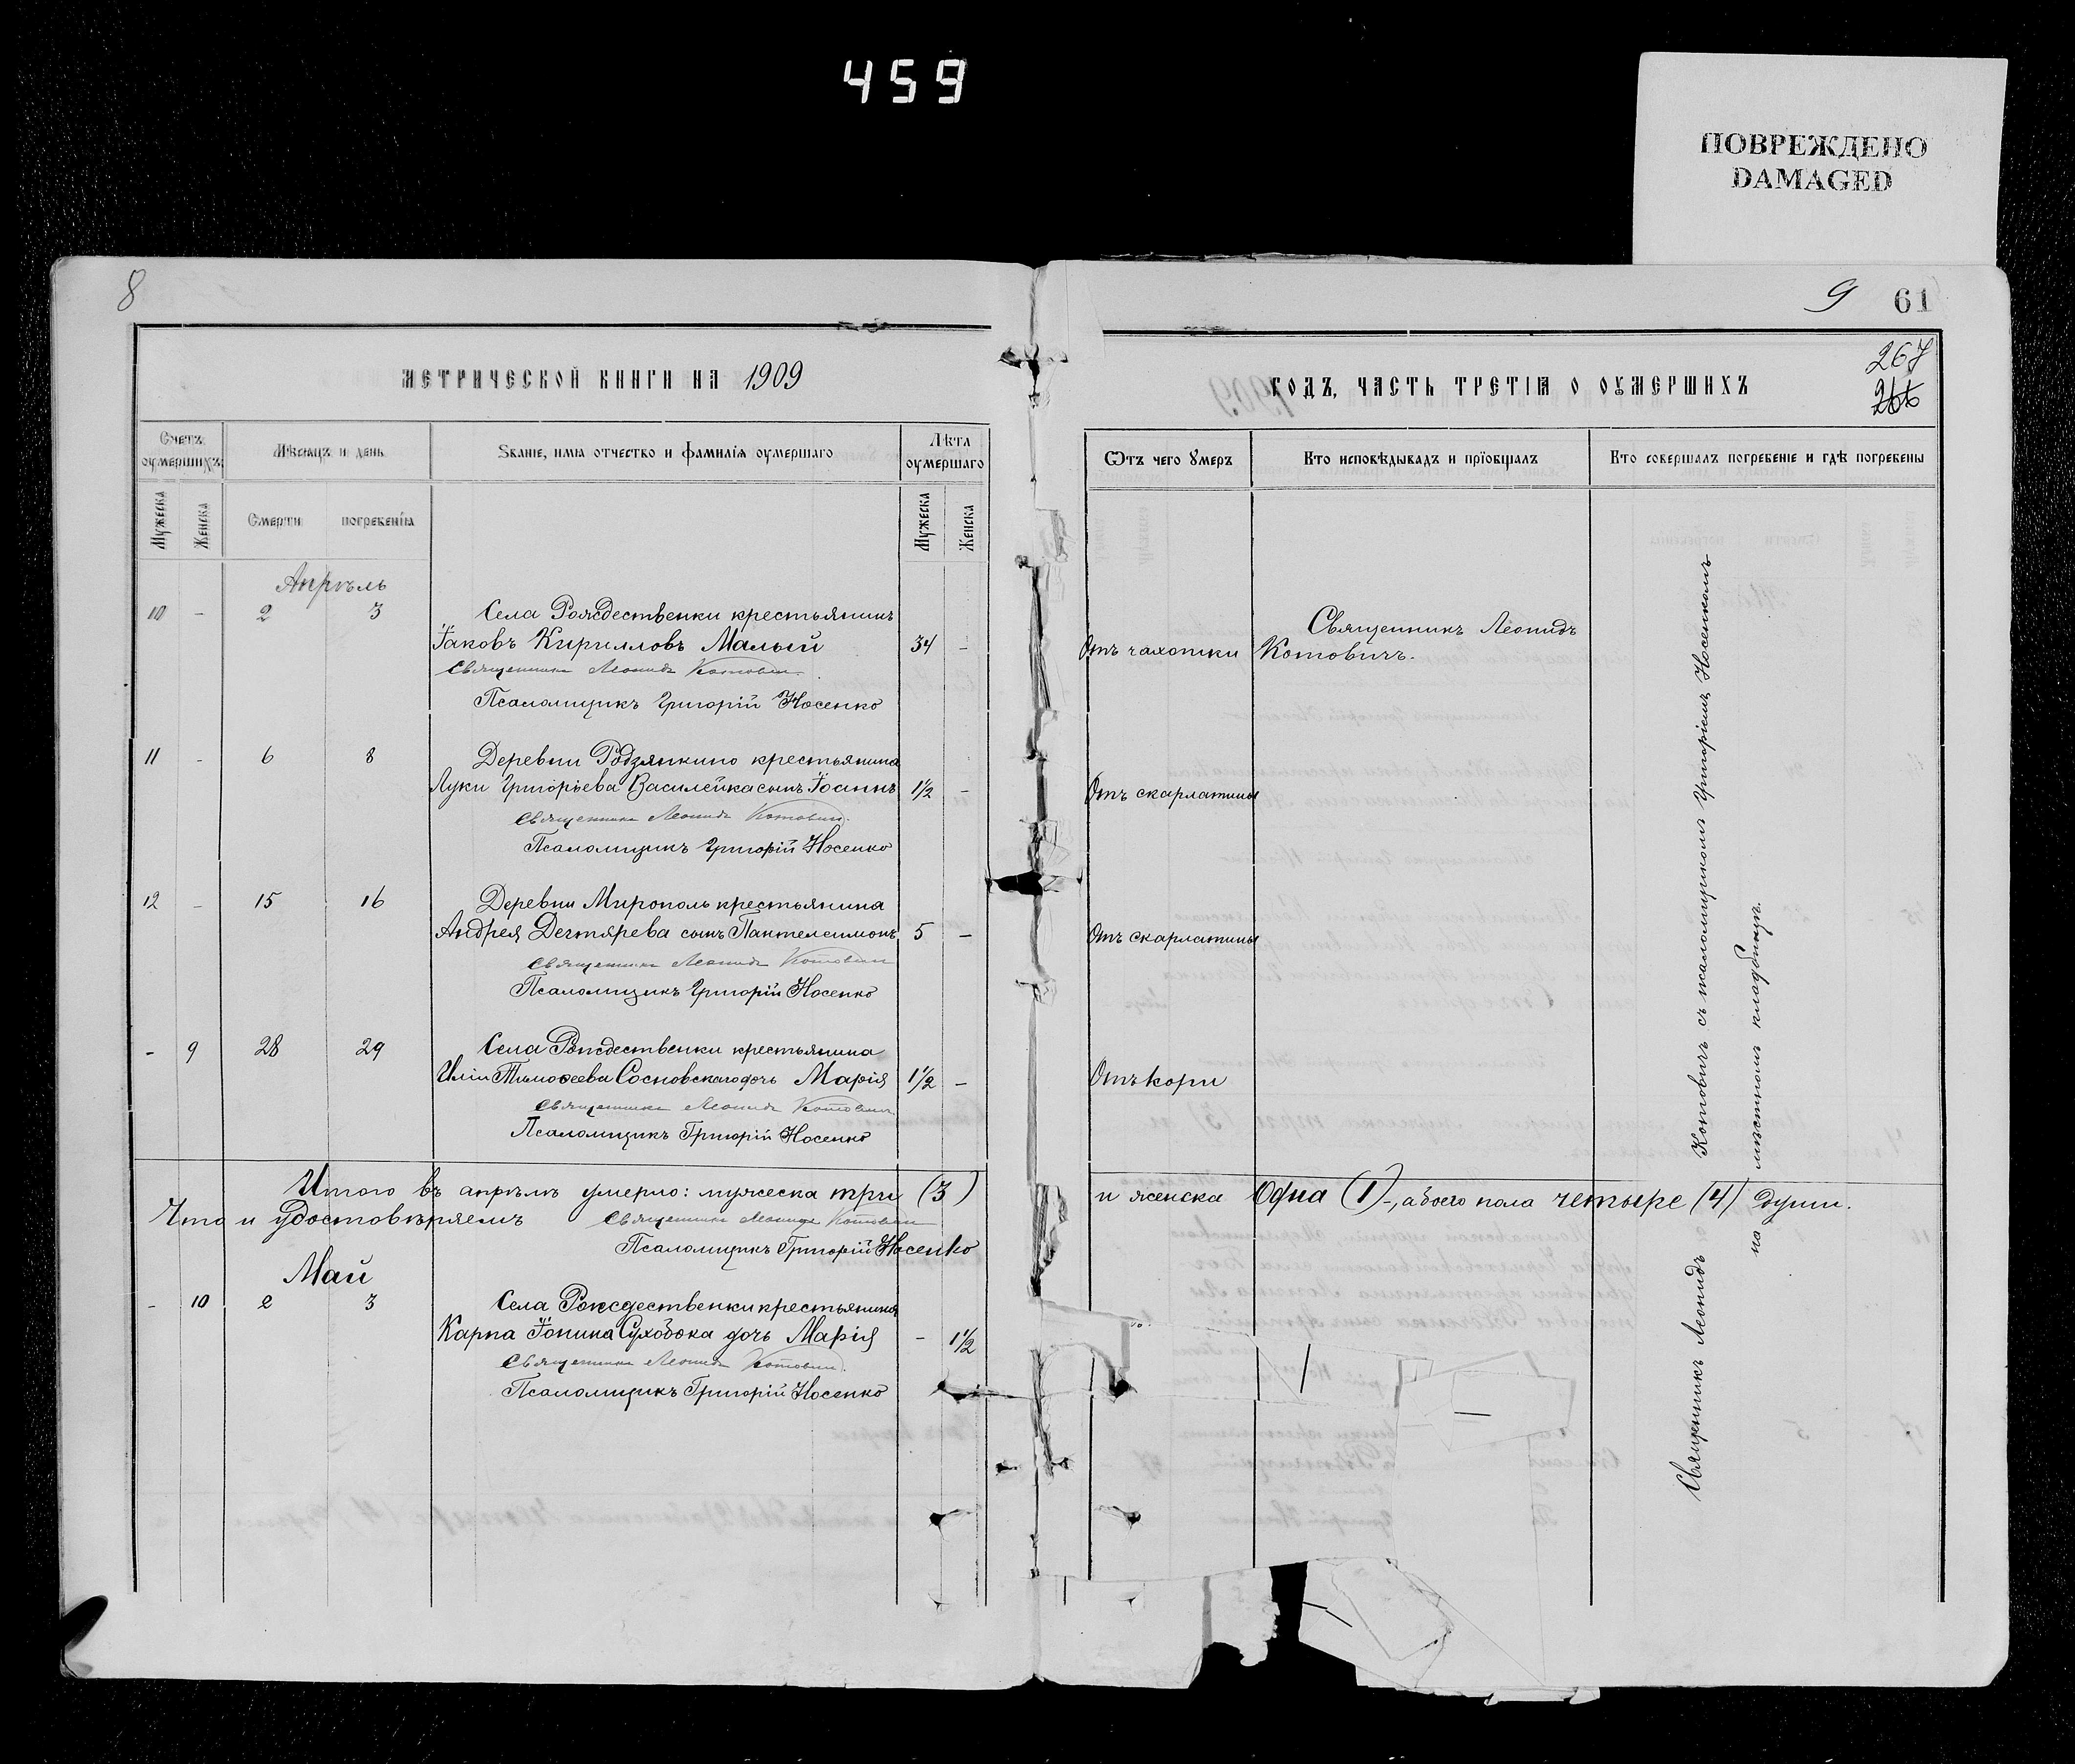 459
ПОВРЕЖДЕНО
DAMAGED
8
МЕТРИЧЕСКОЙ КНИГИ НА 1909
Счетъ оумершихъ
Мѣсяцъ и день
Ѕваніе, имя отчество и фамилія оумершаго
Лѣта оумершаго
Мужеска
Женска
Смерти
погребенія
Мужеска
Женска
Апрѣль
10 - 2 3 Села Рождественки крестьянинъ
Іаковъ Кирилловъ Малый 34 -
Священникъ Леонидъ Котовичъ
Псаломщикъ Григорій Носенко
11 - 6 8 Деревни Родзянкино крестьянина
Луки Григорьева Василейка сынъ Іоаннъ 1½ -
Священникъ Леонидъ Котовичъ
Псаломщикъ Григорій Носенко
12 - 15 16 Деревни Мирополь крестьянина
Андрея Дегтярева сынъ Пантелеимонъ 5 -
Священникъ Леонидъ Котовичъ
Псаломщикъ Григорій Носенко
- 9 28 29 Села Рождественки крестьянина
Иліи Тимоѳеева Сосновскаго дочь Марія 1½ -
Священникъ Леонидъ Котовичъ
Псаломщикъ Григорій Носенко
Итого въ апрѣлѣ умерло: мужеска три (3)
Что и удостовѣряемъ Священникъ Леонидъ Котовичъ
Псаломщикъ Григорій Носенко
Май
- 10 2 3 Села Рождественки крестьянина
Карпа Іонина Сухобока дочь Марія - 1½
Священникъ Леонидъ Котовичъ
Псаломщикъ Григорій Носенко
9 61
267
266
ГОДЪ, ЧАСТЬ ТРЕТІЯ О ОУМЕРШИХЪ
Ѿтъ чего Умеръ
Кто исповѣдывалъ и пріобщалъ
Кто совершалъ погребеніе и гдѣ погребены
Отъ чахотки
Священникъ Леонидъ
Котовичъ.
Отъ скарлатины
Отъ скарлатины
Отъ кори
и женска Одна (1) -, обоего пола четыре (4) души.
Священникъ Леонидъ Котовичъ съ псаломщикомъ Григоріемъ Носенкомъ
на мѣстномъ кладбищѣ.